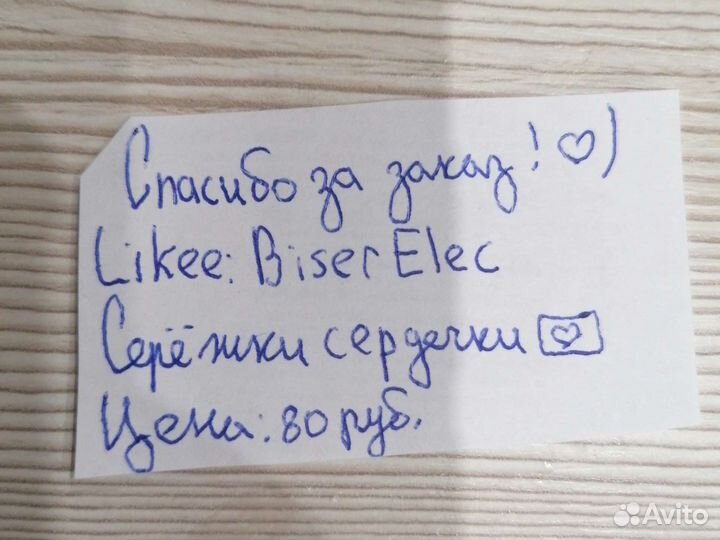 Спасибо за заказ! ♡)
Likee: Biser Elec
Серёжки сердечки ♡
Цена: 80 руб.
Avito